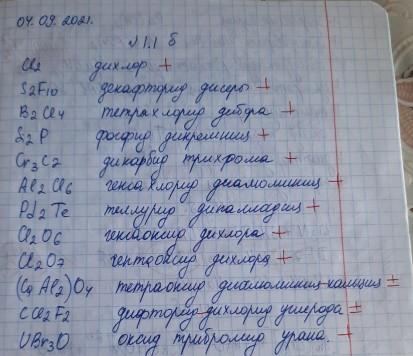 04.09.2021.
№1.1 б
Cl2 дихлор +
S2F10 декафторид дисеры +
B2Cl4 тетрахлорид дибора +
Si2P фосфид дикремния +
Cr3C2 дикарбид трихрома +
Al2Cl6 гексахлорид диалюминия +
Pd2Te теллурид дипалладия +
Cl2O6 гексаоксид дихлора +
Cl2O7 гептаоксид дихлора +
(CaAl2)O4 тетраоксид диалюминия-кальция ±
CCl2F2 дифторид-дихлорид углерода ±
UBr3O оксид трибромид урана. +